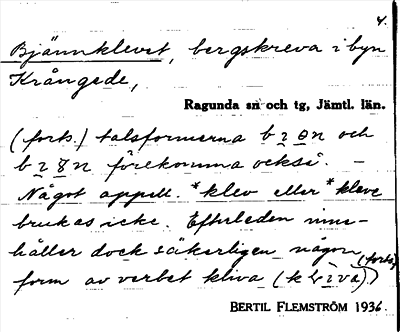 4.
Bjännklevet, bergskreva i byn
Krångede,
Ragunda sn och tg, Jämtl. län.
(forts.) talsformerna och
förekomma också. –
Något appell. *klev eller *kleve
brukas icke. Efterleden inne-
håller dock säkerligen någon (forts.)
form av verbet kliva
BERTIL FLEMSTRÖM 1936.